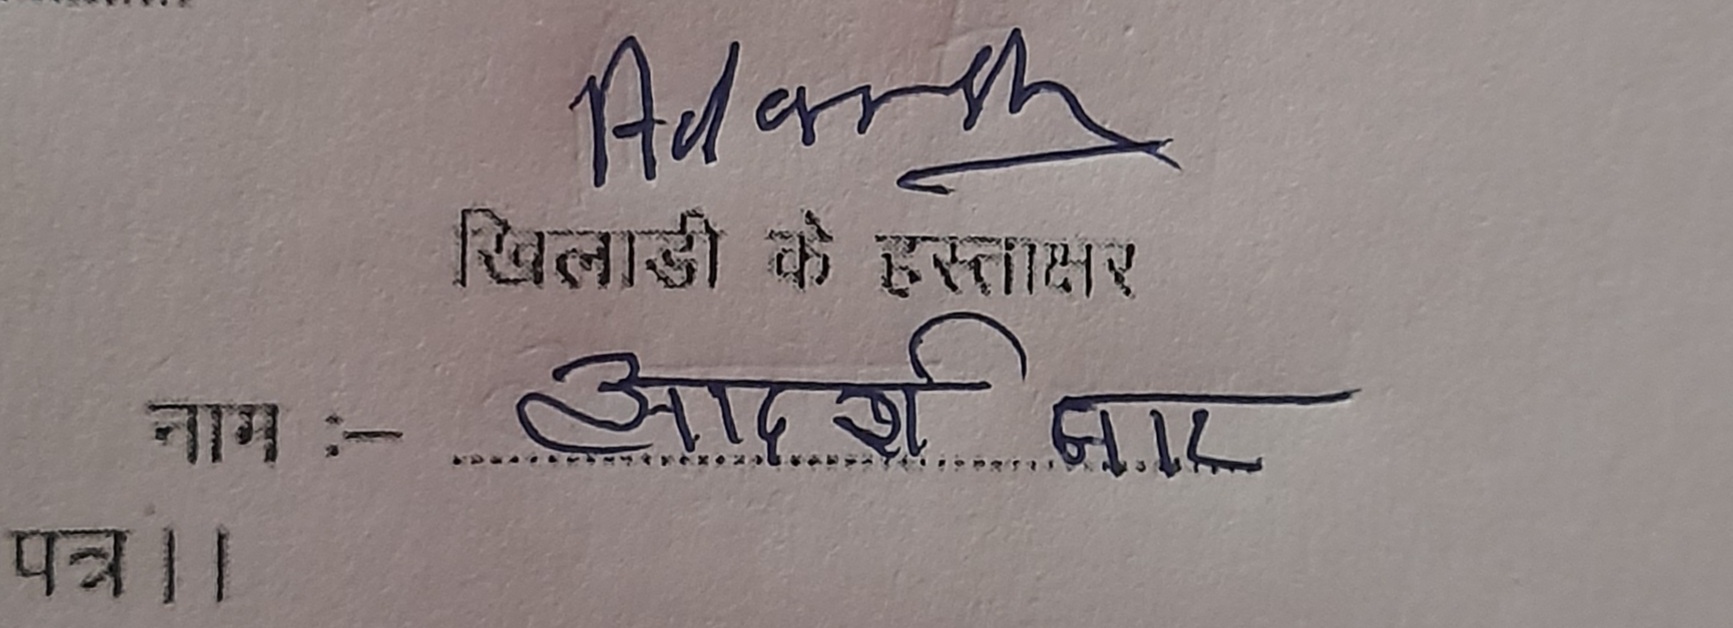 Adarsh
खिलाडी के हस्ताक्षर
नाम :- आदर्श
पत्र ।।